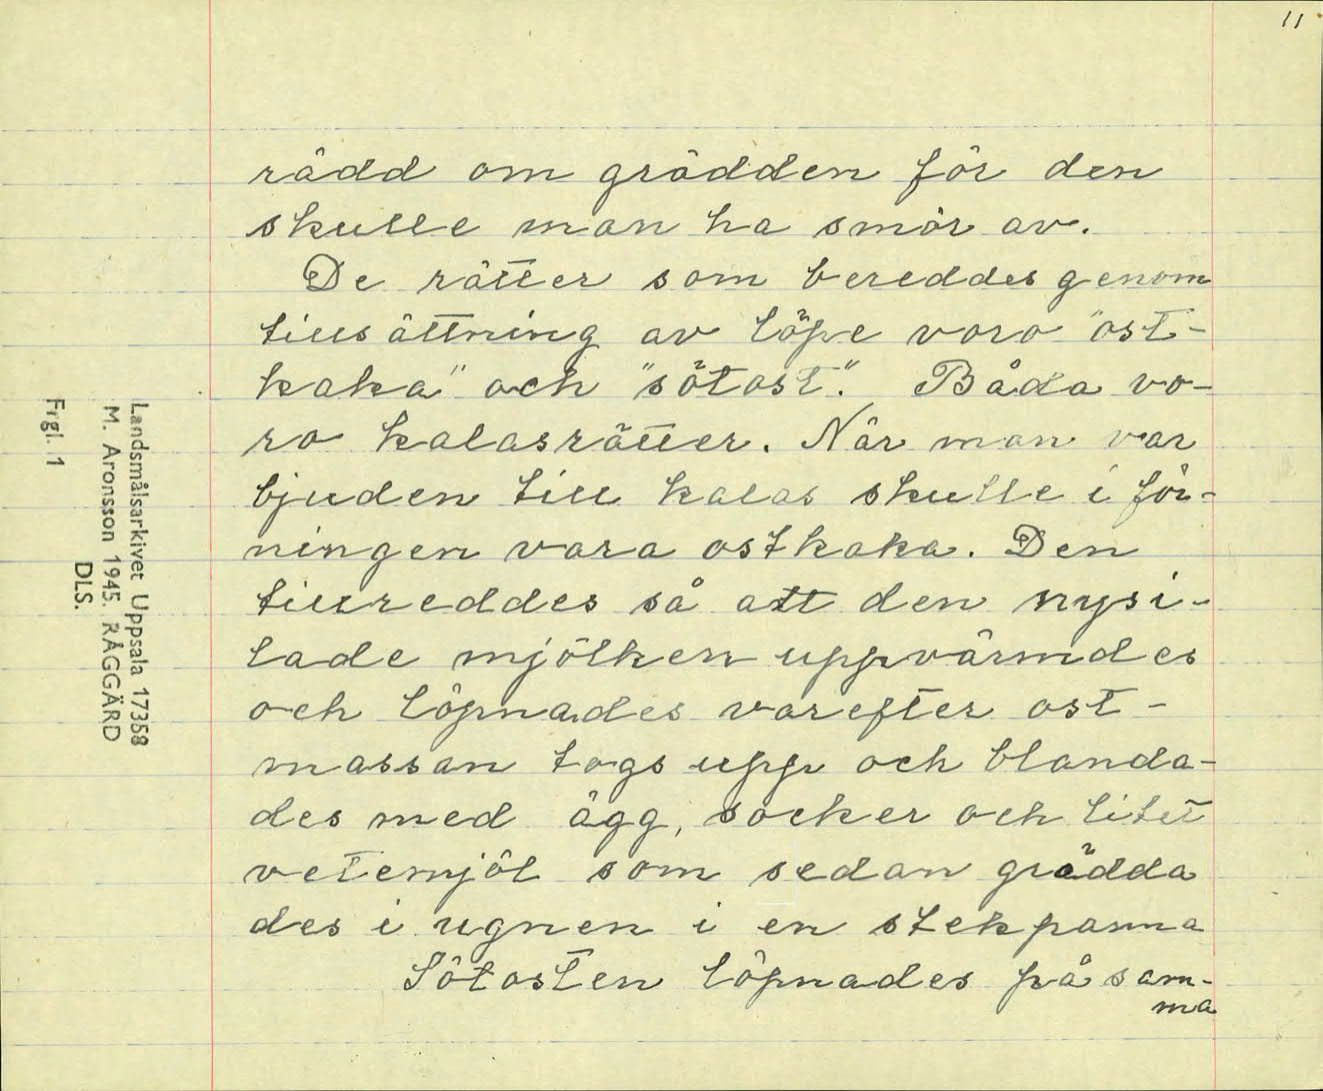 11
rädd om grädden för den
skulle man ha smör av.
De rätter som bereddes genom
tillsättning av löpe voro "ost-
kaka" och "sötost". Båda vo-
ro kalasrätter. När man var
bjuden till kalas skulle i för-
ningen vara ostkaka. Den
tillreddes så att den nysi-
lade mjölken uppvärmdes
och löpnades varefter ost-
massan togs upp och blanda-
des med ägg, socker och litet
vetemjöl som sedan grädda
des i ugnen i en stekpanna
Sötosten löpnades på sam-
ma
Landsmålsarkivet Uppsala 17358
M. Aronsson 1945. RÅGGÄRD
DLS.
Frgl. 1